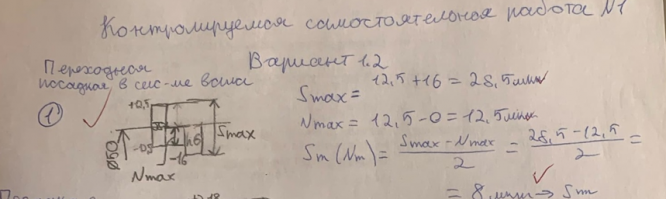 Контролируемая самостоятельная работа N1
Вариант 1.2
Переходная
посадка в сис-ме вала
Smax = 12,5 + 16 = 28,5 мкм
1
Smax
h6
-16
Ø50
Nmax
Nmax = 12,5 - 0 = 12,5 мкм
Sm (Nm) = Smax - Nmax / 2 = 28,5 - 12,5 / 2 =
= 8 мкм → Sm